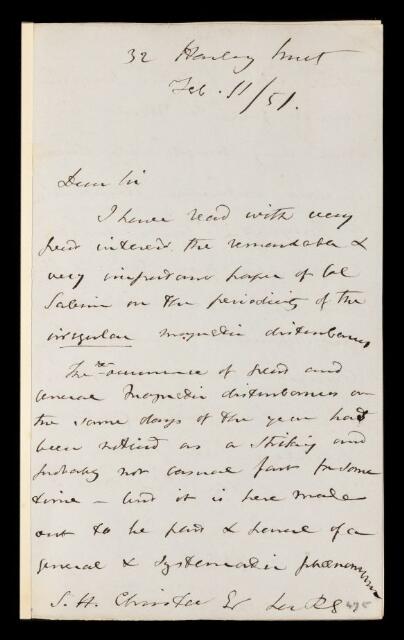 32 Harley Street
Feb. 11/51.
Dear Sir
I have read with very
great interest the remarkable &
very important paper of Col
Sabine on the periodicity of the
irregular magnetic disturbances
The re-occurrence of great and
general magnetic disturbances on
the same days of the year had
been noticed as a striking and
probably not casual fact for some
time - but it is here made
out to be part & parcel of a
general & systematic phænomenon
S. H. Christie Esq Sec RS 495